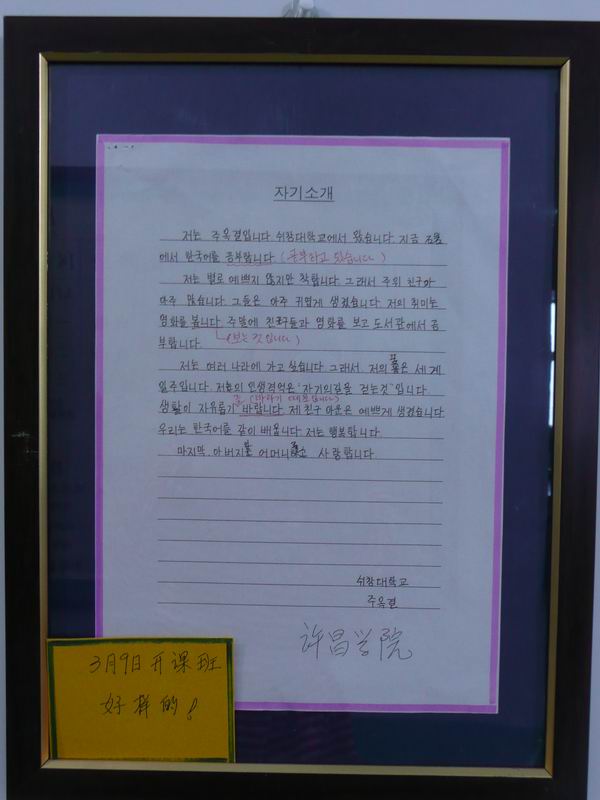 자기소개
저는 주옥결입니다. 쉬창대학교에서 왔습니다. 지금
에서 한국어를 공부합니다 (공부하고 있습니다)
저는 별로 예쁘지 않지만 착합니다. 그래서 주위 친구가
아주 많습니다. 그들은 아주 귀엽게 생겼습니다. 저의 취미는
영화를 봅니다. 주말에 친구들과 영화를 보고 도서관에서 공
(보는 것입니다)
부합니다.
저는 여러 나라에 가고 싶습니다. 그래서 저의 꿈은 세계
일주입니다. 저의 인생격언은 "자기의길을 걷는것"입니다.
생활이 자유롭기 바랍니다. 제 친구 아운은 예쁘게 생겼습니다
우리는 한국어를 같이 배웁니다. 저는 행복합니다.
마지막 아버지 어머니 사랑합니다
쉬창대학교
주옥결
许昌学院
3月9日开课班
好样的!